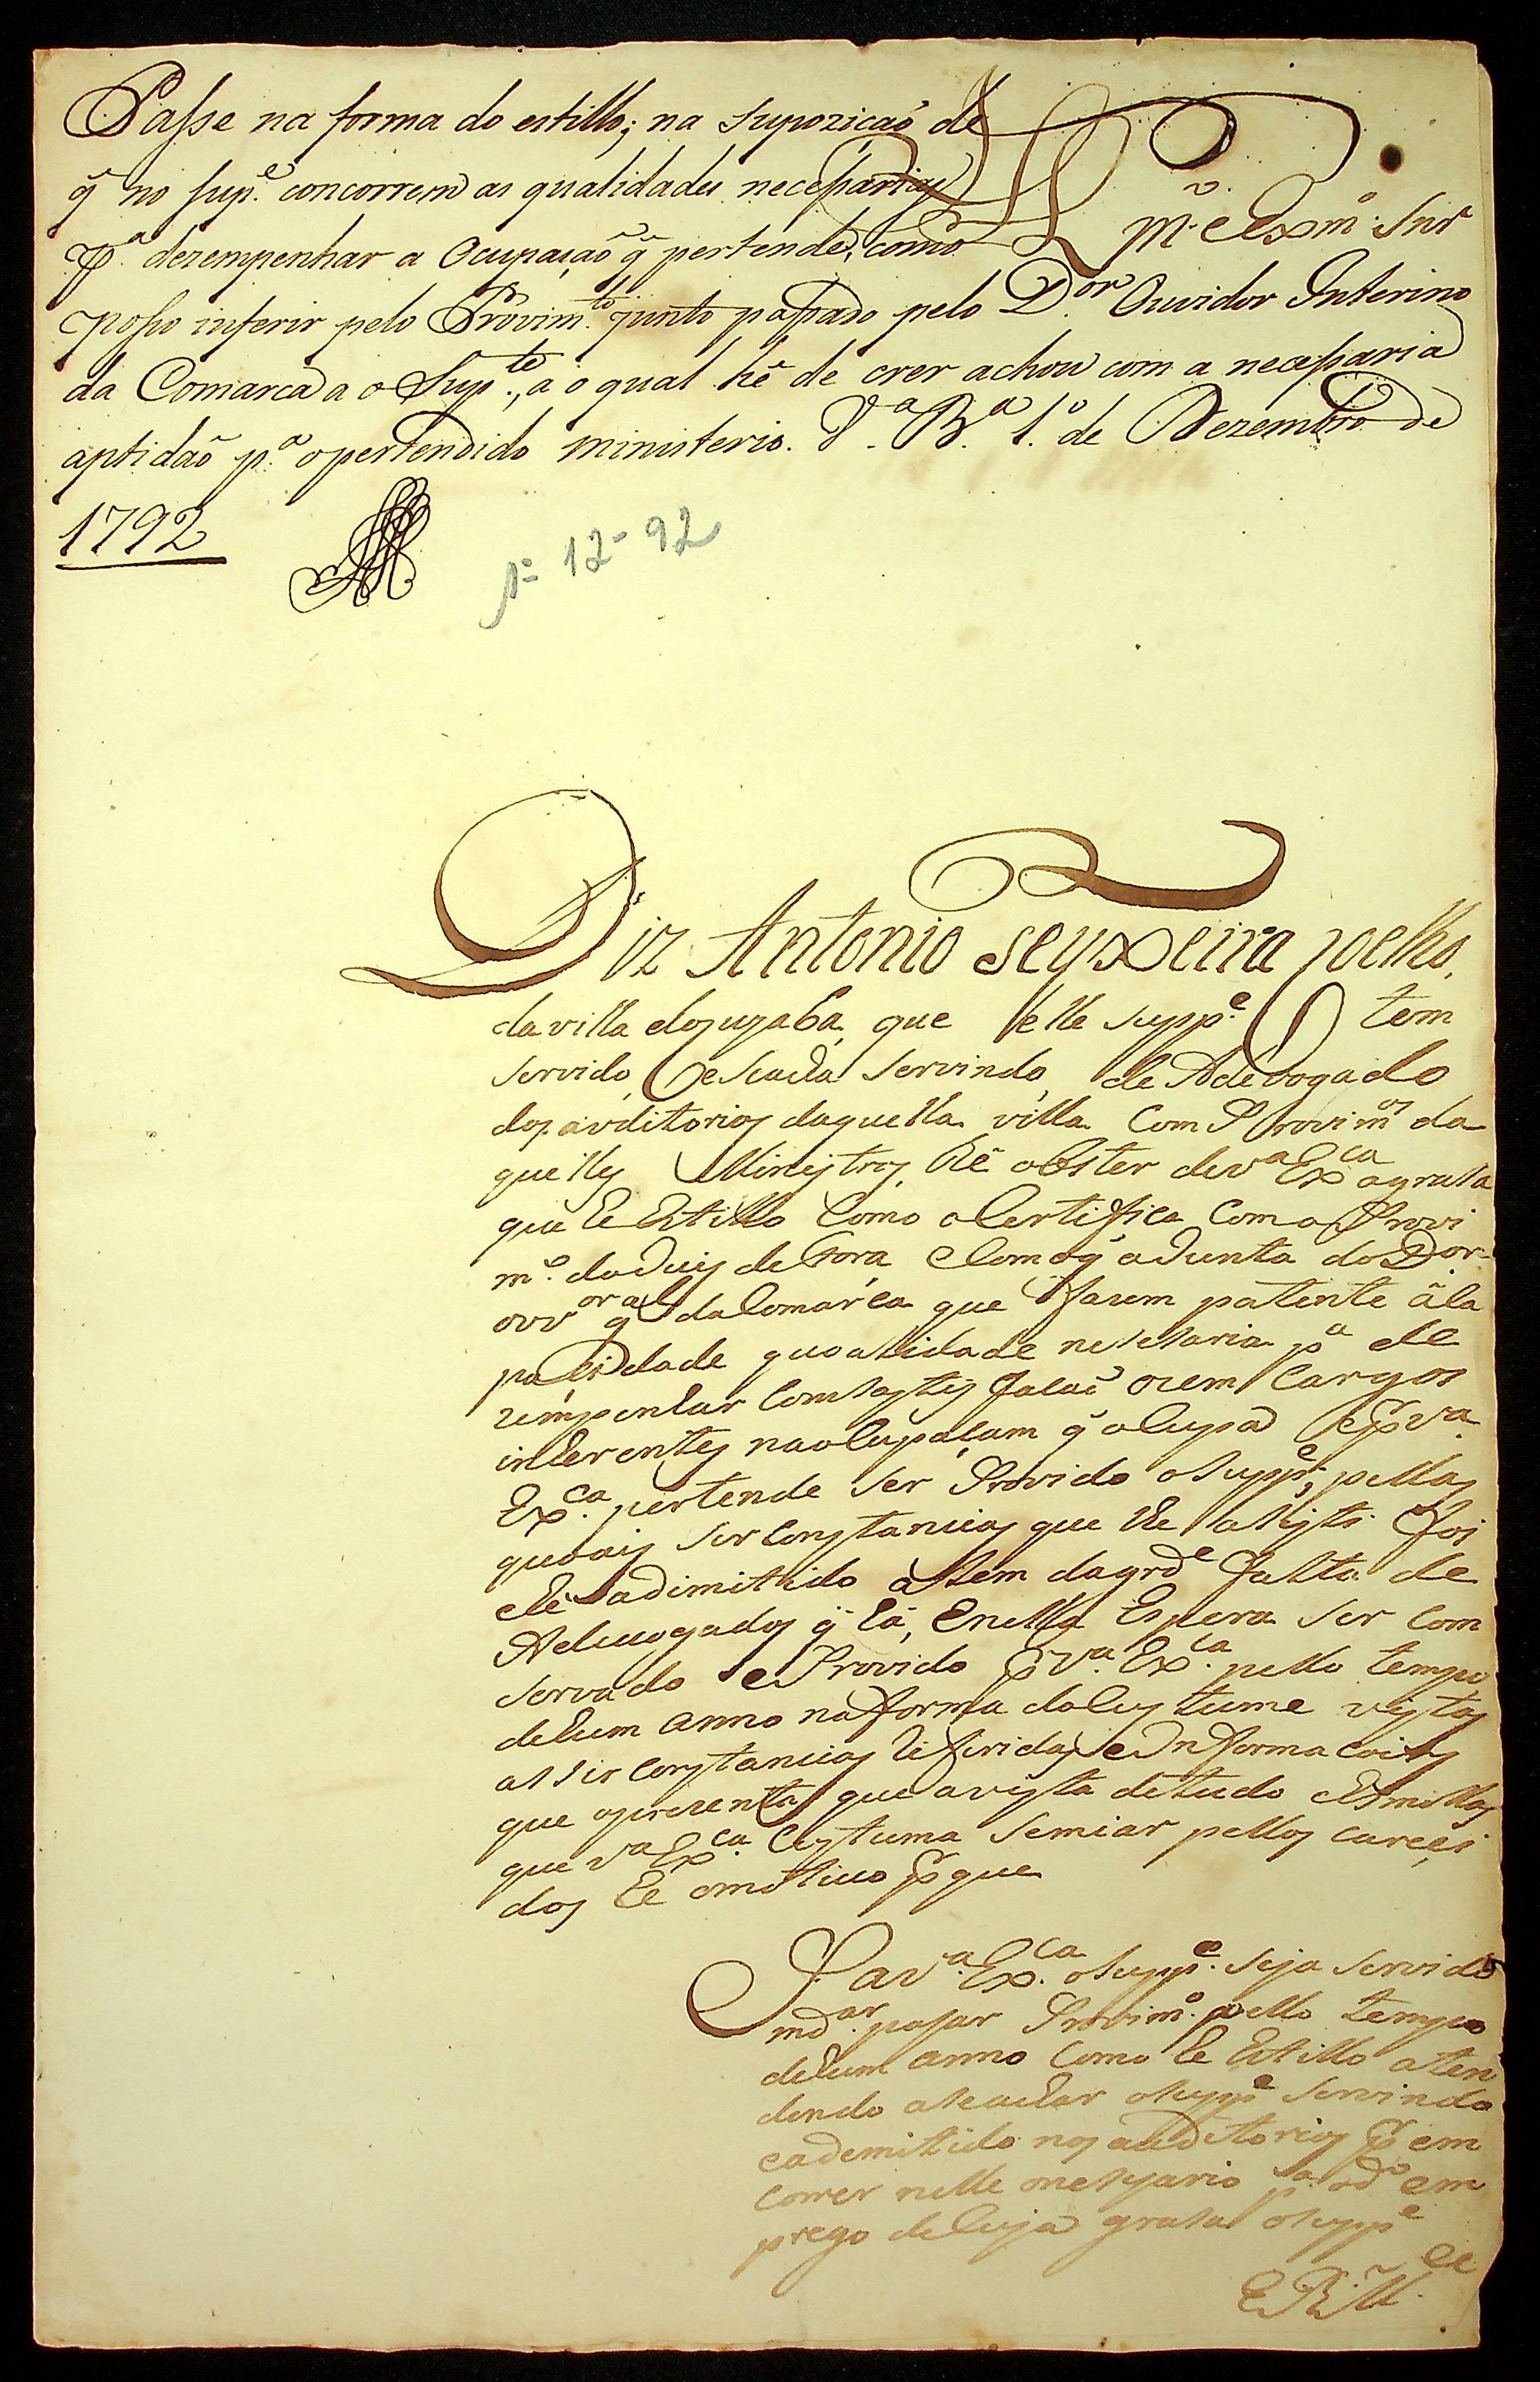 Passe na forma do estillo; na supozição de
q̃ no sup.e concorrem as qualidades necessarias
p.a dezempenhar a Ocupação q̃ pertende, como
posso inferir pelo Provim.to junto passado pelo D.or Ouvidor Interino
da Comarca a o Sup.te, a o qual hé de crer achou com a necessaria
aptidão p.a o pertendido ministerio. V.a B.a 1.o de Dezembro de
1792
1º 12- 92
Ill.mo e Exm.o Snr
Diz Antonio Teyxeira Coelho,
da villa de cuyaba, que elle supp.e tem
servido, e está servindo, de Adevogado
dos auditorios daquella villa Com Provim.os da
quelles Ministros, hê obter de v.a Ex.ca a graça
que he Estillo Como o Certifica Com o Provi
m.o do Juis de fora, e Com oq̃ adjunta do D.or
ouv.or g.al da Comarca que fazem patente âca
pacidade quoalidade nececaria p.a de
zempenhar
inherentes na ocupaçam q̃ ocupa e p.r v.a
Ex.ca pertende ser Provido o supp.e, pellas
quoais sirConstancias que lhe asiste foi
elê adimitido alem da gr.de falta de
Adevogados q̃ há, e nella Espera ser Com
servado e Provido p.r V.a Ex.ca pello tempo
de hum anno na forma do Custume vistas
as sirConstancias referidas e Informacois
que aprezenta que a vista de tudo
que V.a Ex.ca Custuma pellos carçei
dos he o motivo p.r que
P. a V.a Ex.ca o supp.e seja servido
md.ar pasar Provim.o pello tempo
de hum anno Como he Estillo aten
dendo a se achar o supp.e servindo
e ademitido nos auditorios p.r em
correr nelle o nesesario p.a o d.o em
prego de Cuja grasa o supp.e
E R M.ce